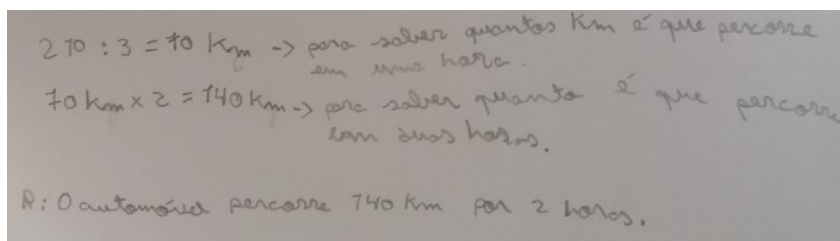 210 : 3 = 70 Km -> para saber quantos Km é que percorre
em uma hora.
70 km x 2 = 140 km -> para saber quanto é que percorre
com duas horas.
R: O automóvel percorre 140 km por 2 horas.